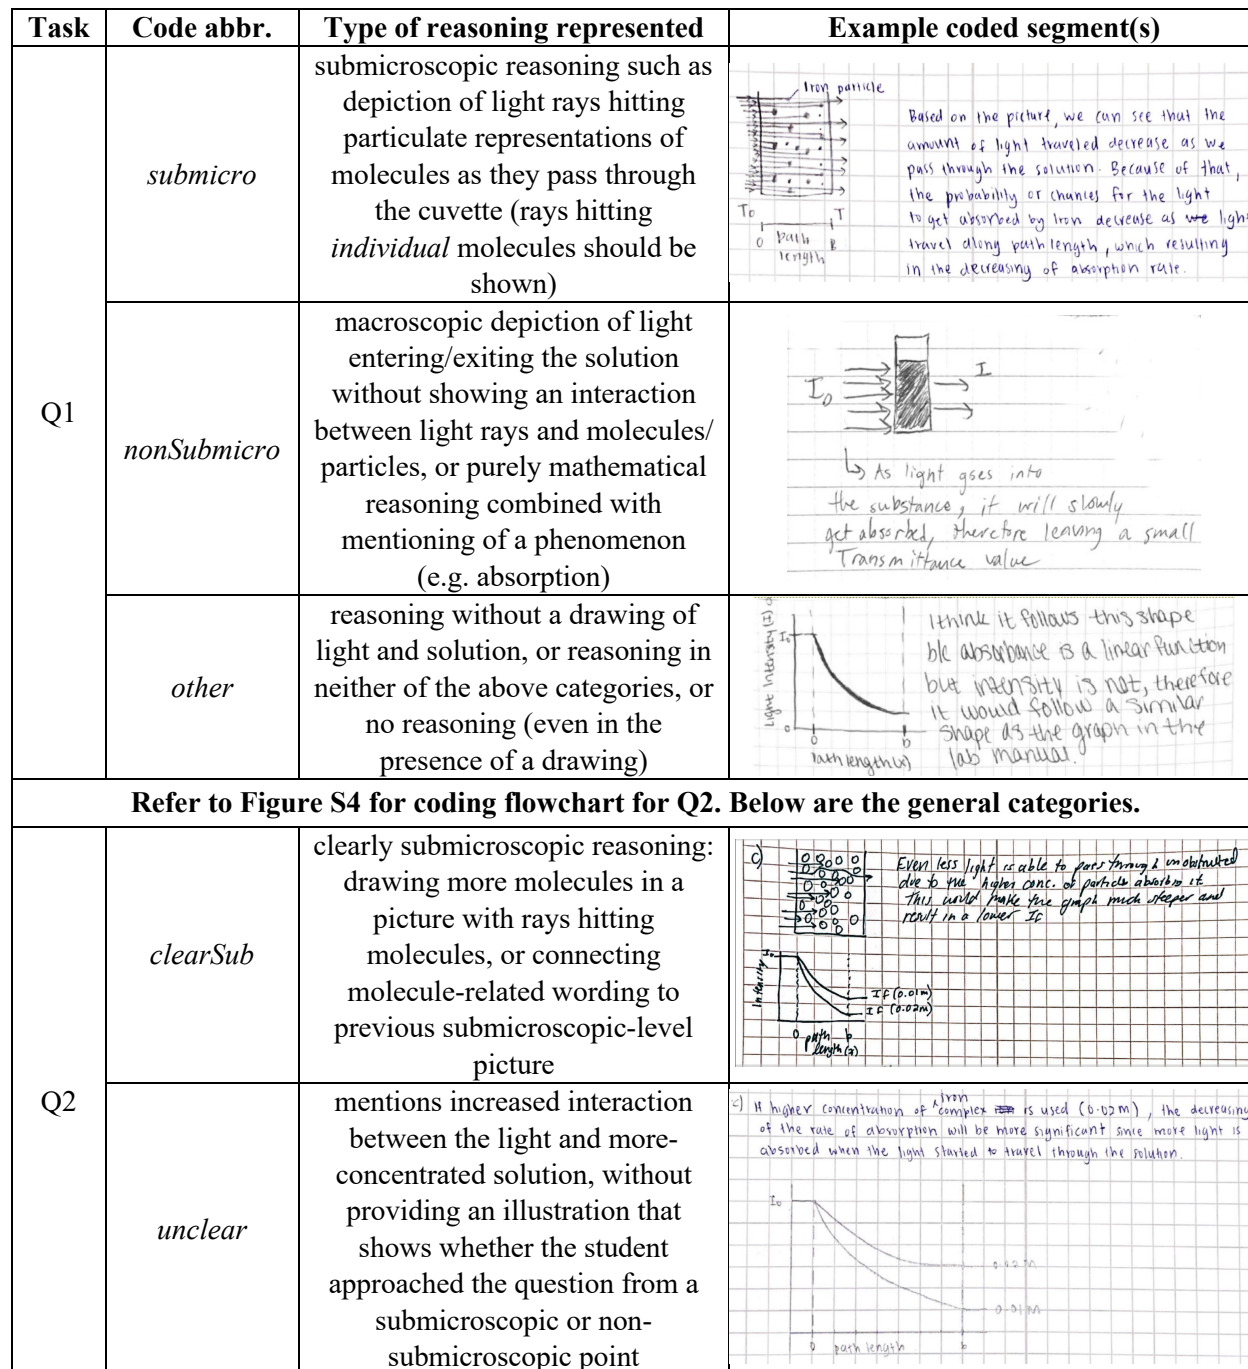 Task Code abbr. Type of reasoning represented Example coded segment(s)
Q1
submicro
submicroscopic reasoning such as
depiction of light rays hitting
particulate representations of
molecules as they pass through
the cuvette (rays hitting
individual molecules should be
shown)
Iron particle
T0 T
0 path B
length
Based on the picture, we can see that the
amount of light traveled decrease as we
pass through the solution. Because of that,
the probability or chances for the light
to get absorbed by Iron decrease as we light
travel along path length, which resulting
in the decreasing of absorption rate.
nonSubmicro
macroscopic depiction of light
entering/exiting the solution
without showing an interaction
between light rays and molecules/
particles, or purely mathematical
reasoning combined with
mentioning of a phenomenon
(e.g. absorption)
I0 I
As light goes into
the substance, it will slowly
get absorbed, therefore leaving a small
Transmittance value
other
reasoning without a drawing of
light and solution, or reasoning in
neither of the above categories, or
no reasoning (even in the
presence of a drawing)
Light Intensity (I)
I0
0
0 b
path length (x)
I think it follows this shape
b/c absorbance is a linear function
but intensity is not, therefore
it would follow a similar
shape as the graph in the
lab manual.
Refer to Figure S4 for coding flowchart for Q2. Below are the general categories.
Q2
clearSub
clearly submicroscopic reasoning:
drawing more molecules in a
picture with rays hitting
molecules, or connecting
molecule-related wording to
previous submicroscopic-level
picture
c)
Even less light is able to pass through unobstructed
due to the higher conc. of particle absorbing it
This would make the graph much steeper and
result in a lower If
Intensity
I0
If (0.01m)
If (0.02m)
0 path b
length (x)
unclear
mentions increased interaction
between the light and more-
concentrated solution, without
providing an illustration that
shows whether the student
approached the question from a
submicroscopic or non-
submicroscopic point
c) If higher concentration of iron complex is used (0.02M), the decreasing
of the rate of absorption will be more significant since more light is
absorbed when the light started to travel through the solution.
I0
0.02M
0.01M
0 path length b